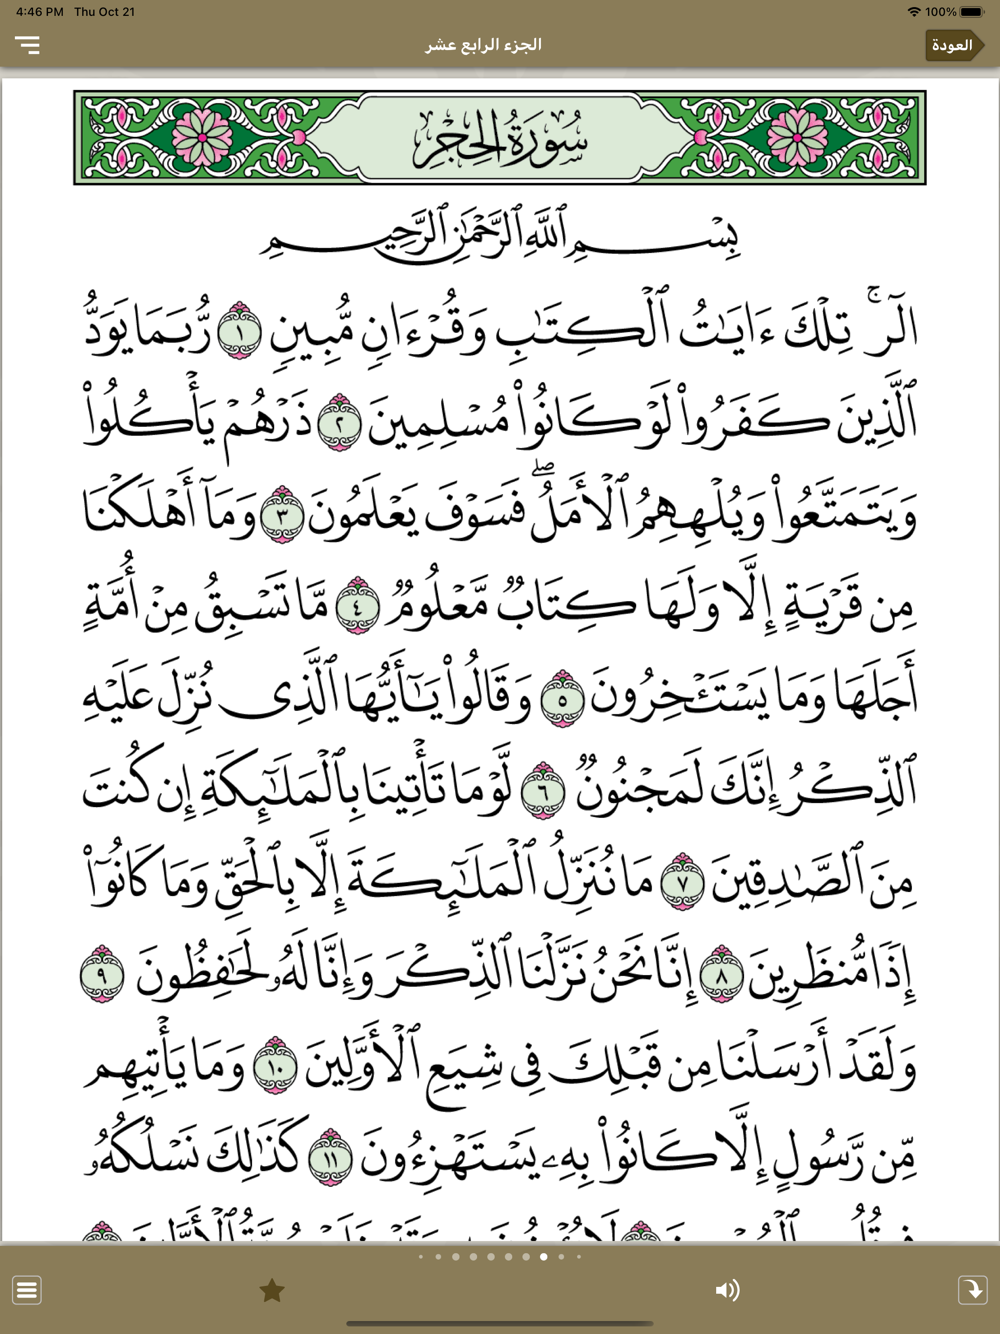 4:46 PM Thu Oct 21 100%
الجزء الرابع عشر العودة
سُورَةُ الحِجْرِ
بِسْمِ ٱللَّهِ ٱلرَّحْمَٰنِ ٱلرَّحِيمِ
الٓر ۚ تِلْكَ ءَايَٰتُ ٱلْكِتَٰبِ وَقُرْءَانٍ مُّبِينٍ ١ رُّبَمَا يَوَدُّ
ٱلَّذِينَ كَفَرُوا۟ لَوْ كَانُوا۟ مُسْلِمِينَ ٢ ذَرْهُمْ يَأْكُلُوا۟
وَيَتَمَتَّعُوا۟ وَيُلْهِهِمُ ٱلْأَمَلُ ۖ فَسَوْفَ يَعْلَمُونَ ٣ وَمَآ أَهْلَكْنَا
مِن قَرْيَةٍ إِلَّا وَلَهَا كِتَابٌ مَّعْلُومٌ ٤ مَّا تَسْبِقُ مِنْ أُمَّةٍ
أَجَلَهَا وَمَا يَسْتَـْٔخِرُونَ ٥ وَقَالُوا۟ يَٰٓأَيُّهَا ٱلَّذِى نُزِّلَ عَلَيْهِ
ٱلذِّكْرُ إِنَّكَ لَمَجْنُونٌ ٦ لَّوْ مَا تَأْتِينَا بِٱلْمَلَٰٓئِكَةِ إِن كُنتَ
مِنَ ٱلصَّٰدِقِينَ ٧ مَا نُنَزِّلُ ٱلْمَلَٰٓئِكَةَ إِلَّا بِٱلْحَقِّ وَمَا كَانُوٓا۟
إِذًا مُّنظَرِينَ ٨ إِنَّا نَحْنُ نَزَّلْنَا ٱلذِّكْرَ وَإِنَّا لَهُۥ لَحَٰفِظُونَ ٩
وَلَقَدْ أَرْسَلْنَا مِن قَبْلِكَ فِى شِيَعِ ٱلْأَوَّلِينَ ١٠ وَمَا يَأْتِيهِم
مِّن رَّسُولٍ إِلَّا كَانُوا۟ بِهِۦ يَسْتَهْزِءُونَ ١١ كَذَٰلِكَ نَسْلُكُهُۥ